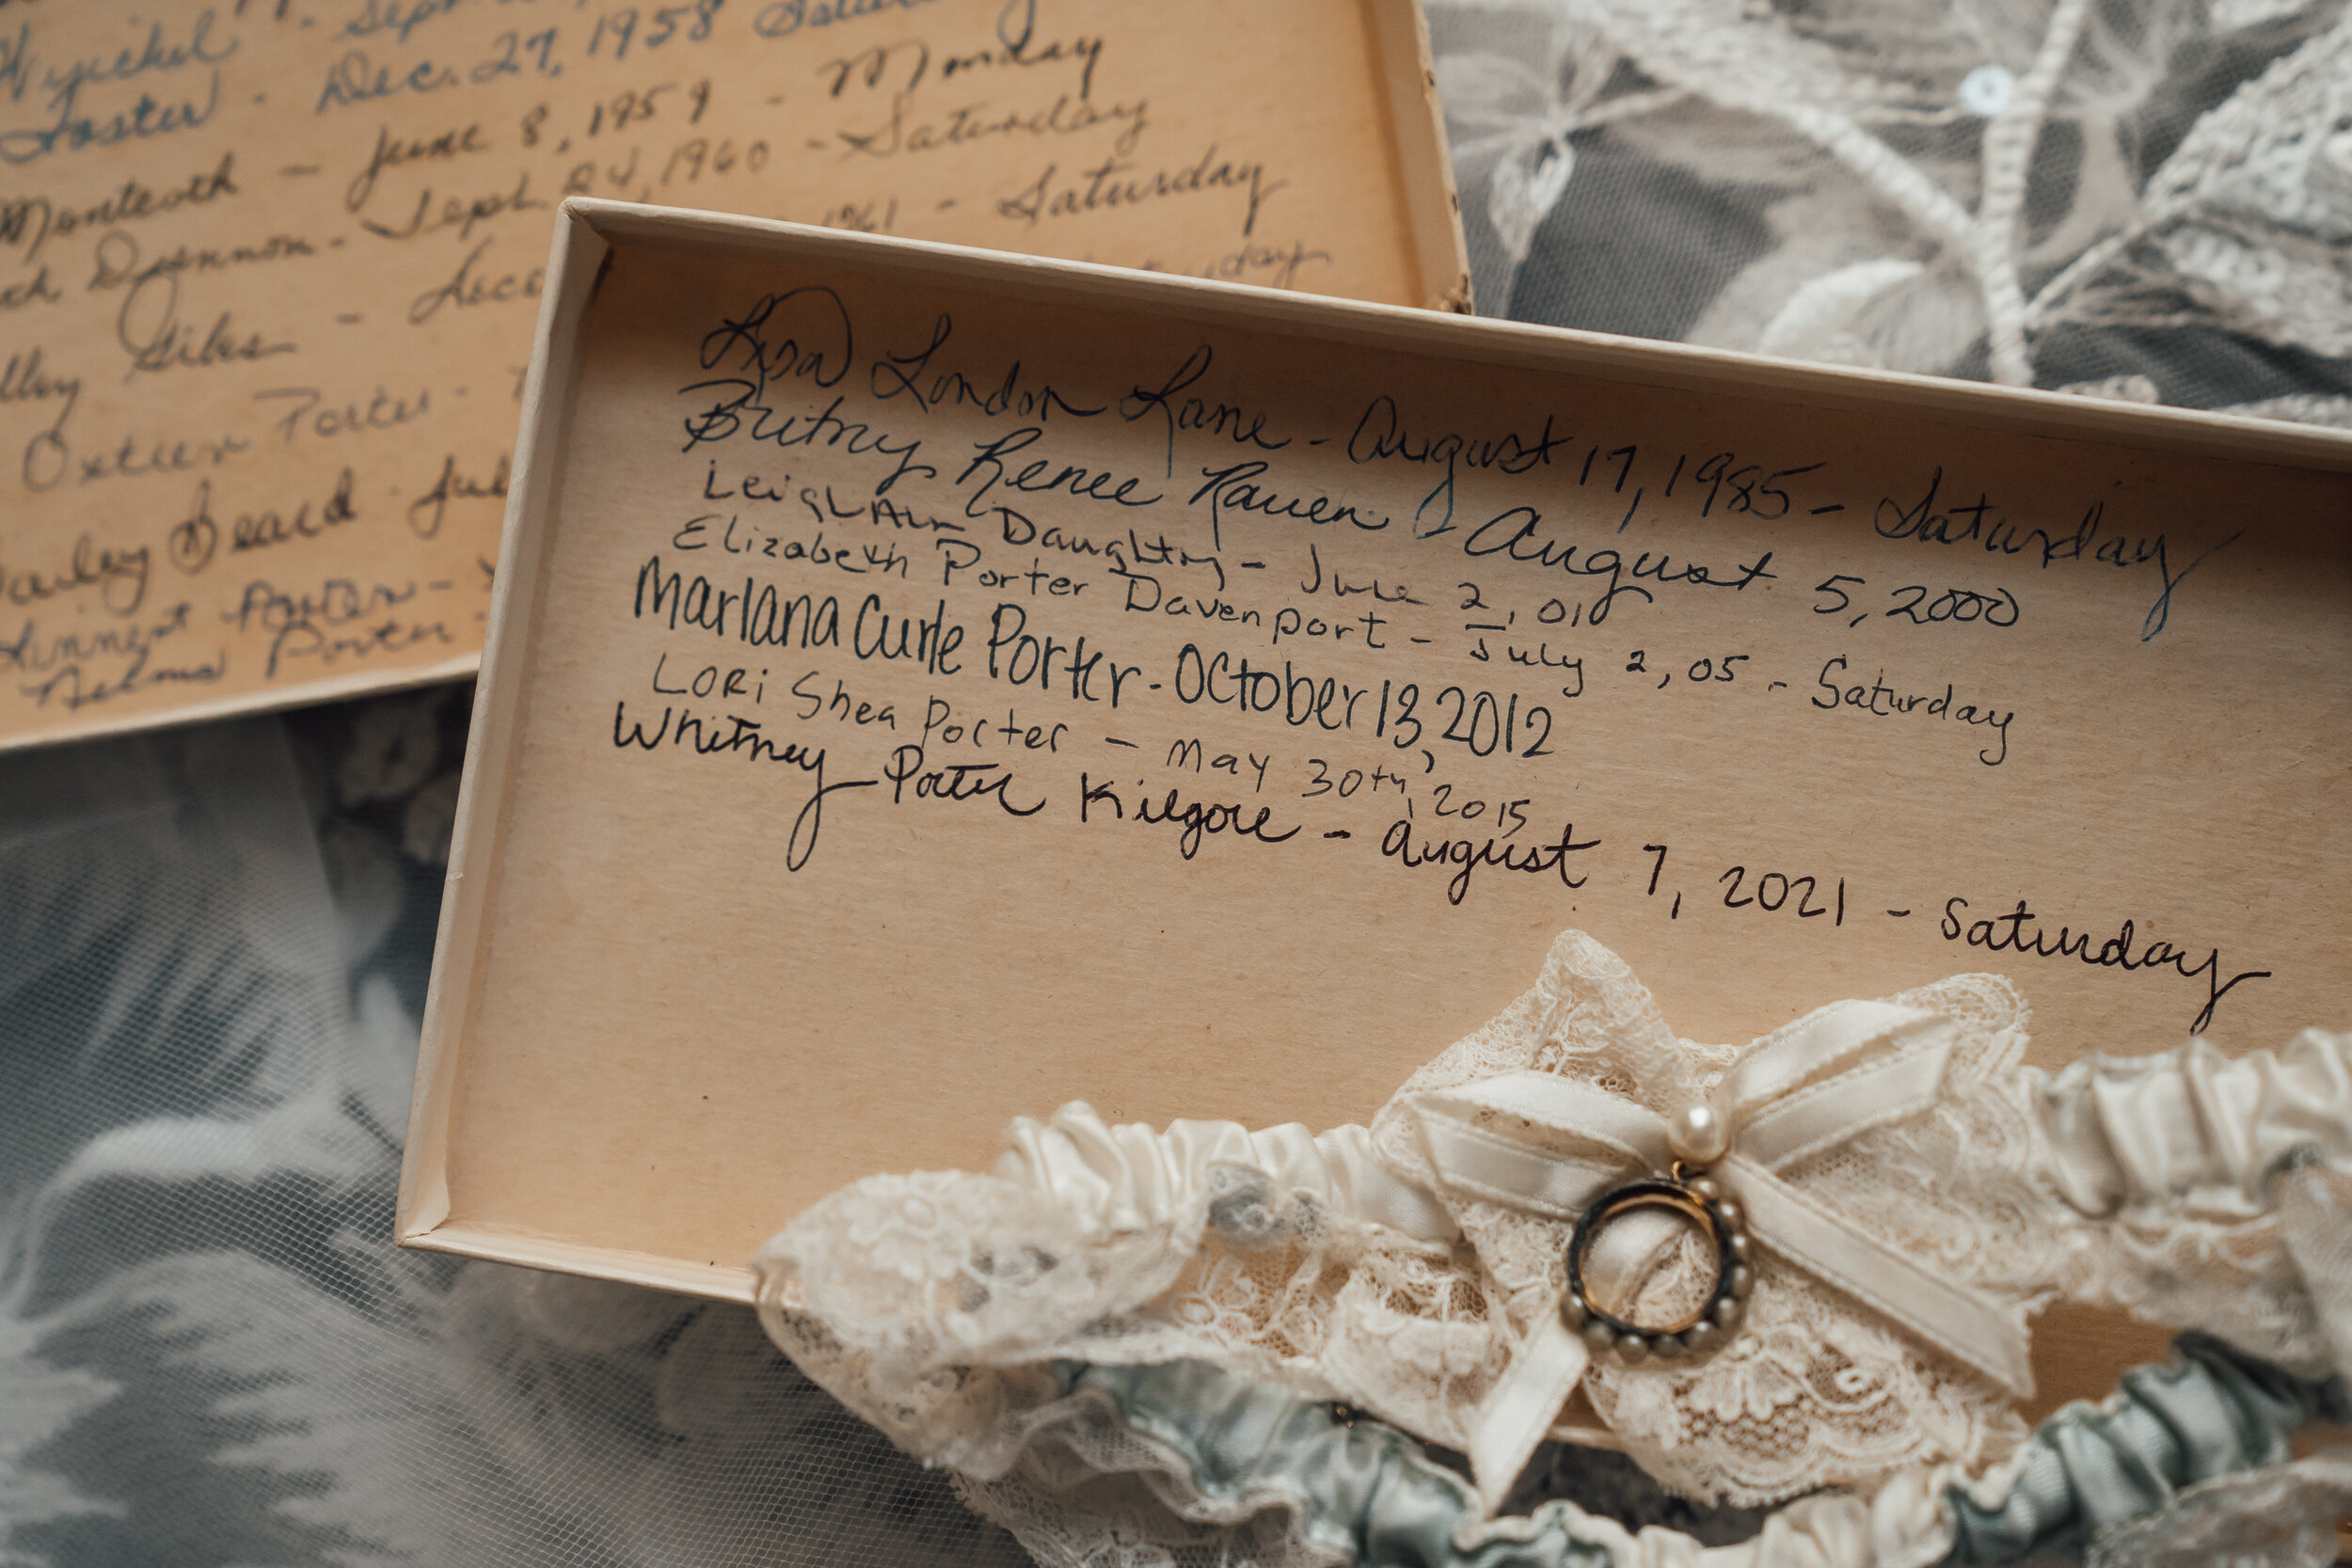 Wyickel - Sept.
Foster - Dec. 27, 1958 Saturday
Monteath - June 8, 1959 - Monday
Drennon - Sept. 24, 1960 - Saturday
Giles - 1961 - Saturday
Porter -
Beard - Jul
Porter -
Nelma Porter -
Lisa London Lane - August 17, 1985 - Saturday
Britny Renee Raven - August 5, 2000
Leigh Ann Daughtry - June 2, 01
Elizabeth Porter Davenport - July 2, 05 - Saturday
Marlana Curle Porter - October 13, 2012
LORi Shea Porter - May 30th, 2015
Whitney Porter Kilgore - August 7, 2021 - Saturday